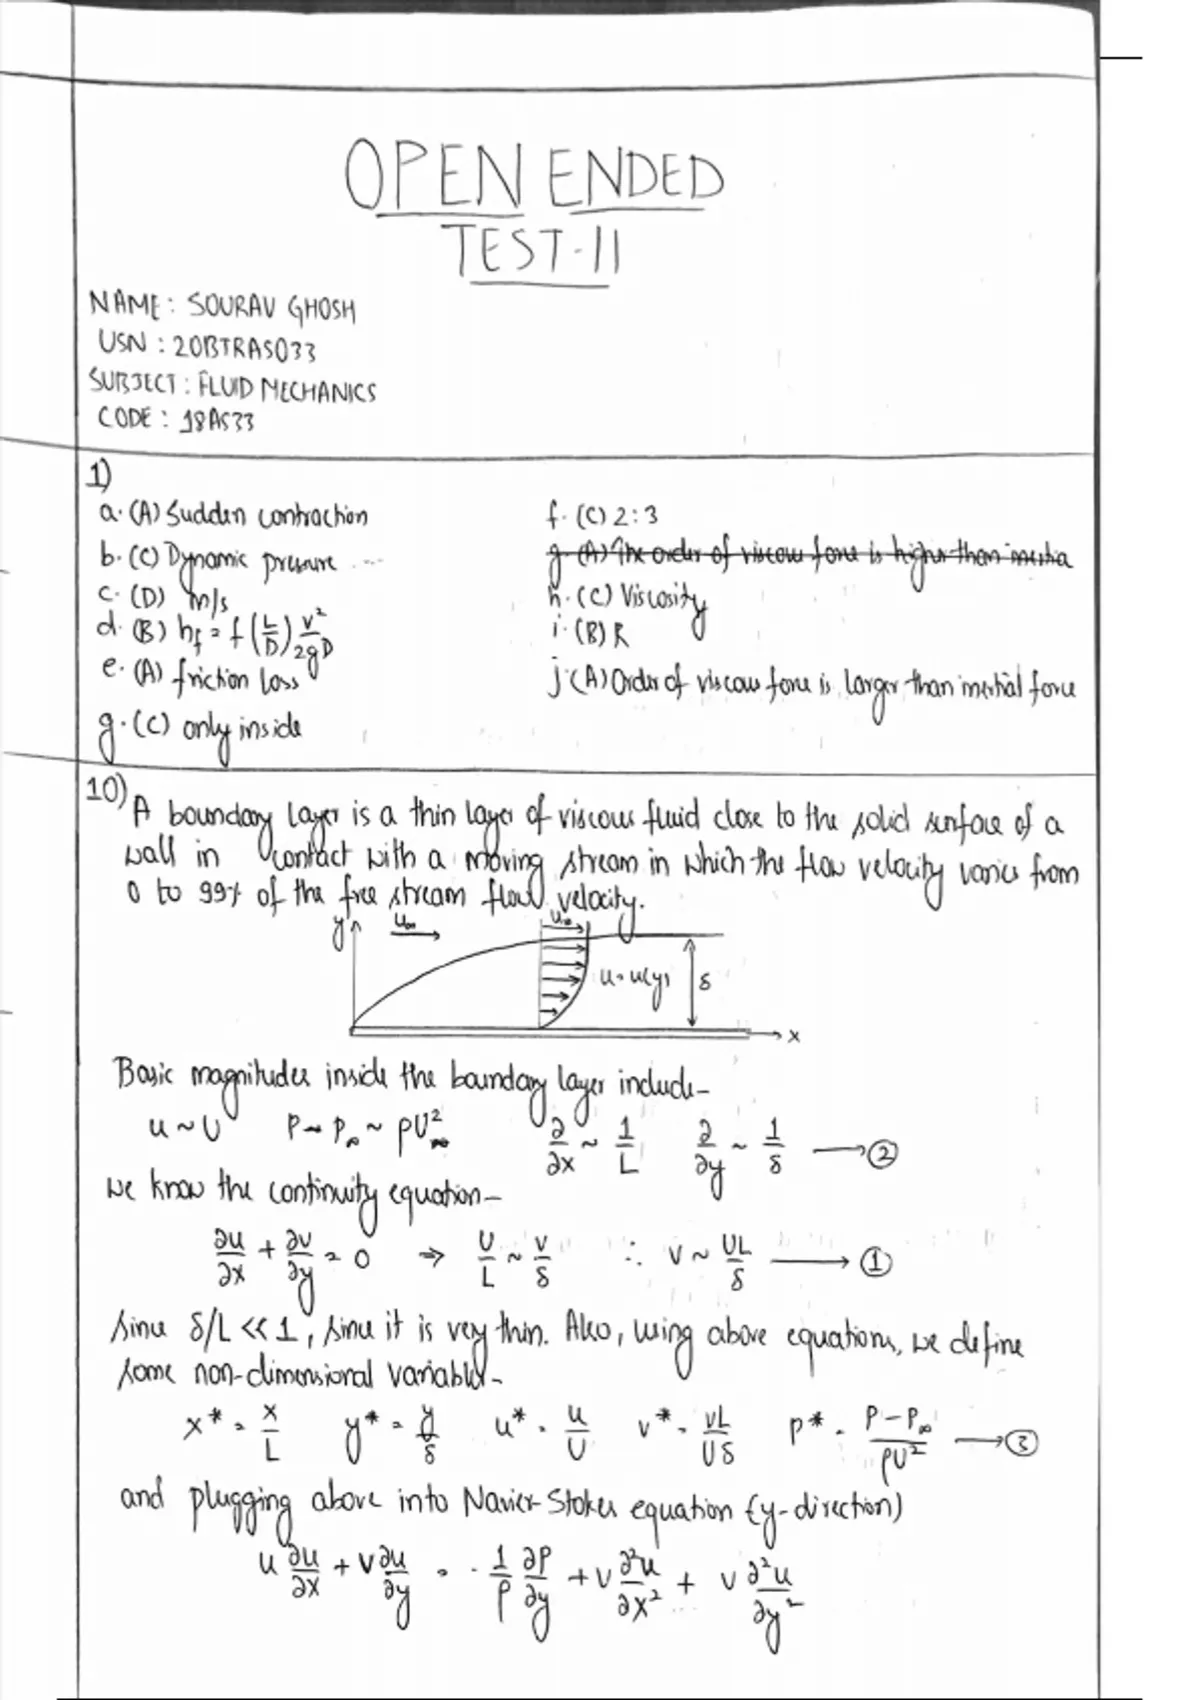 OPEN ENDED
TEST-II
NAME: SOURAV GHOSH
USN : 20BTRAS033
SUBJECT: FLUID MECHANICS
CODE : 18AS33
1)
a. (A) Sudden contraction
b. (C) Dynamic pressure
c. (D) m/s
d. (B) hf = f (L/D) v²/2gD
e. (A) friction loss
g. (C) only inside
f. (C) 2:3
g. (A) The order of viscous force is higher than inertia
h. (C) Viscosity
i. (B) R
j. (A) Order of viscous force is larger than inertial force
10) A boundary layer is a thin layer of viscous fluid close to the solid surface of a
wall in contact with a moving stream in which the flow velocity varies from
0 to 99% of the free stream flow velocity.
y U∞ U∞
u = u(y) δ
x
Basic magnitudes inside the boundary layer include-
u ~ U P ~ P∞ ~ ρU∞² ∂/∂x ~ 1/L ∂/∂y ~ 1/δ → ②
we know the continuity equation-
∂u/∂x + ∂v/∂y = 0 ⇒ U/L ~ v/δ ∴ v ~ UL/δ → ①
since δ/L << 1, since it is very thin. Also, using above equations, we define
some non-dimensional variables-
x* = x/L y* = y/δ u* = u/U v* = vL/Uδ p* = P-P∞/ρU² → ③
and plugging above into Navier-Stokes equation (y-direction)
u ∂u/∂x + v ∂u/∂y = - 1/ρ ∂P/∂y + ν ∂²u/∂x² + ν ∂²u/∂y²